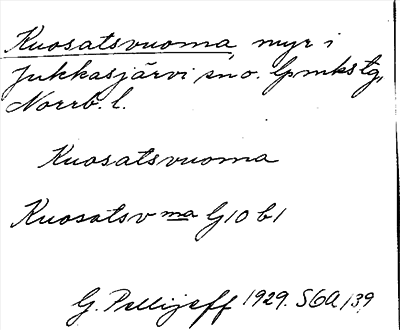 Kuosatsvuoma, myr i
Jukkasjärvi sn o. lpmkstg,
Norrb. l.
Kuosatsvuoma
Kuosatsv ma G10 b1
G. Pellijeff 1929. S6A 139